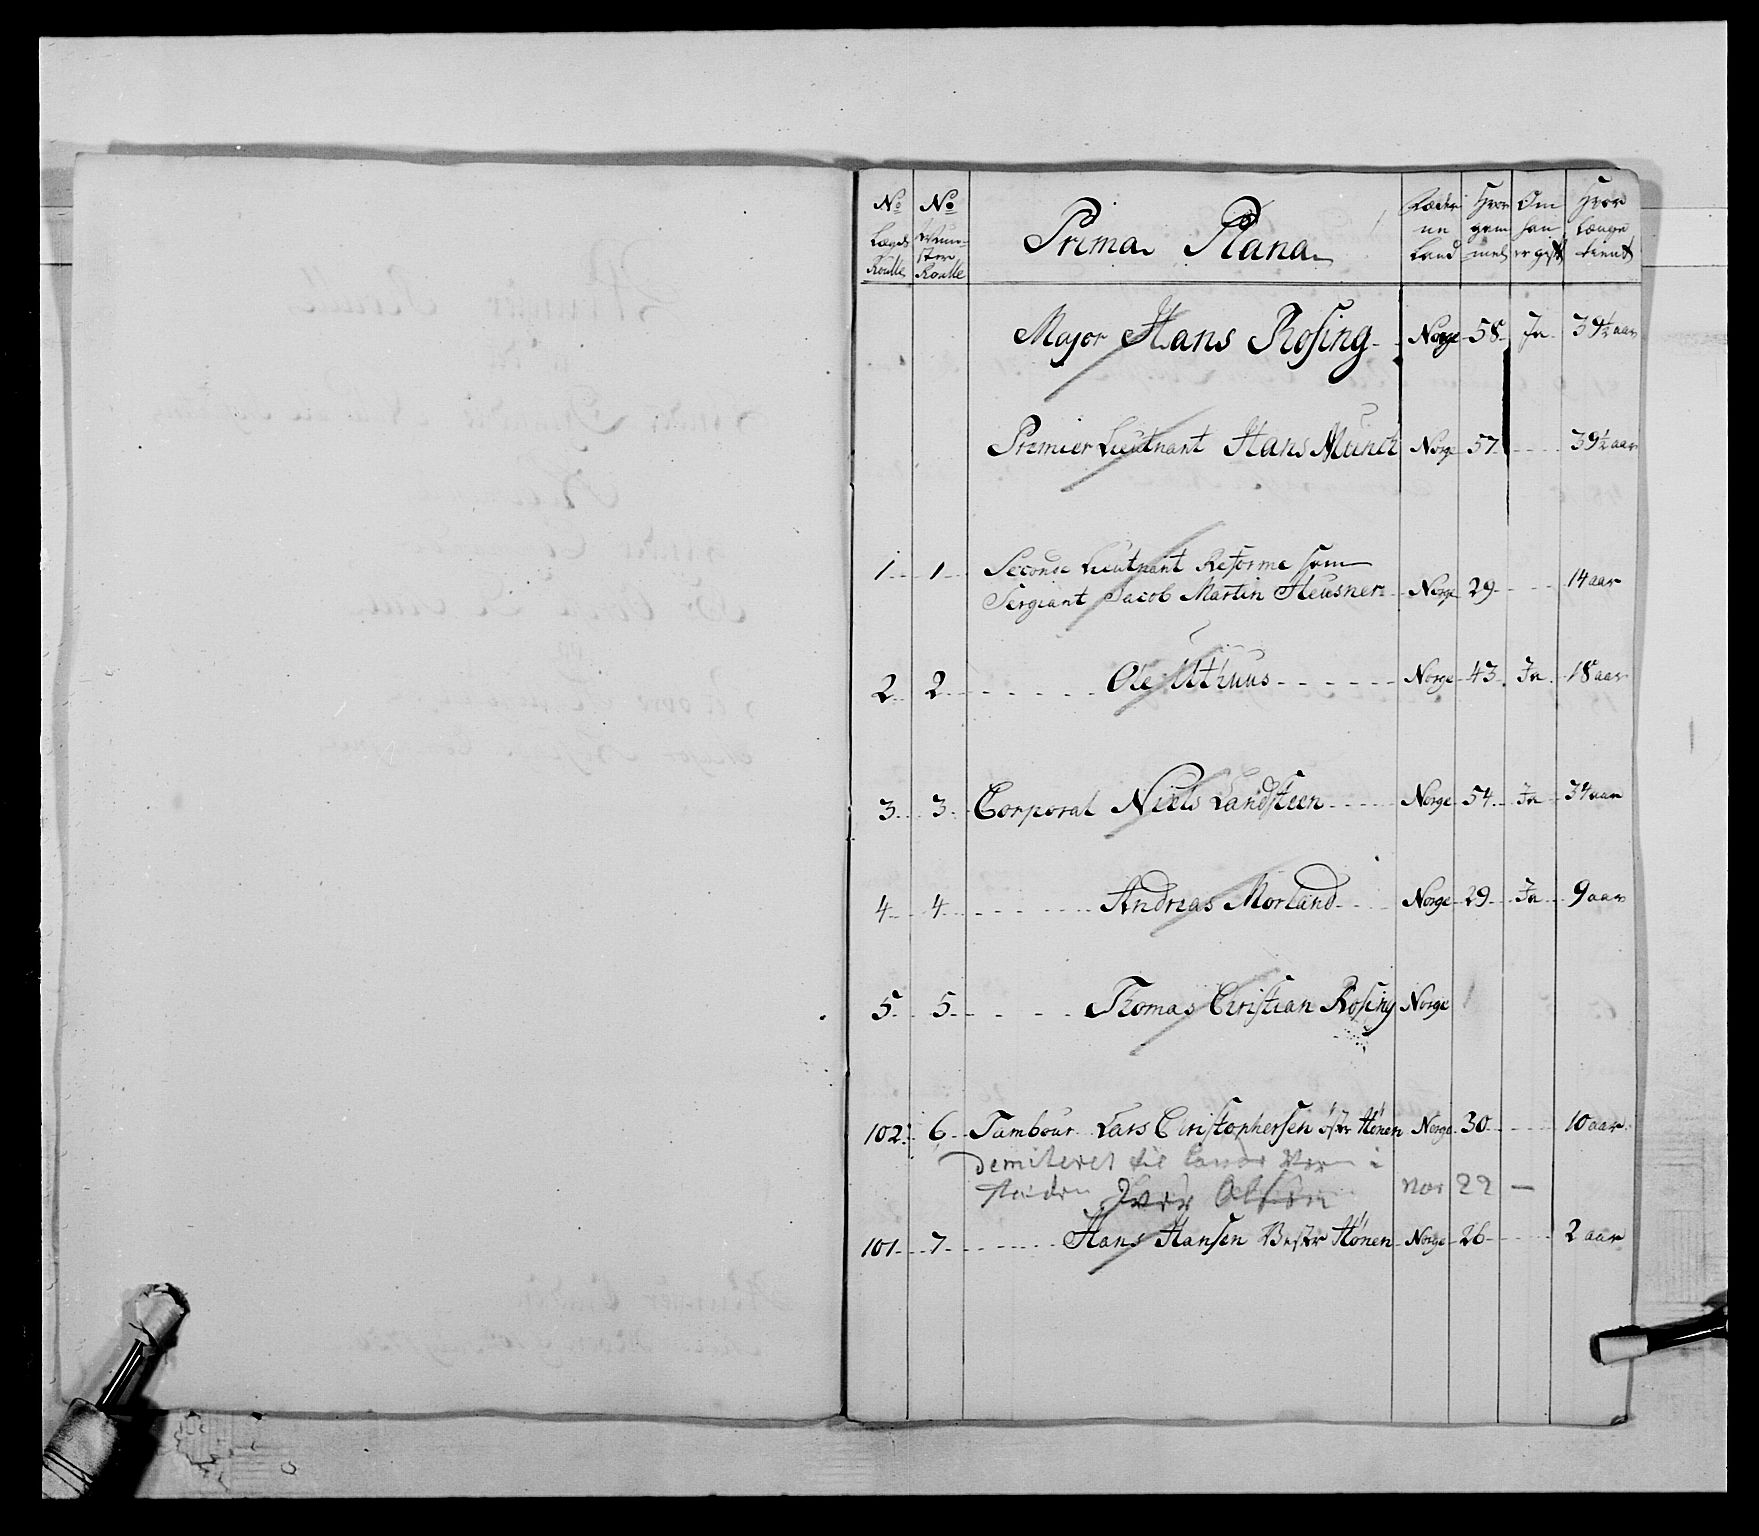 No No Prima Plana Fæder Hvor Om Hvor
Lægds Mun- ne gam han længe
ster
Roulle Roulle Land mel er gift tient
Major Hans Rosing Norge 58 Ja 39½ aar
Premier Lieutnant Hans Munch Norge 57 39½ aar
1 1 Seconde Lieutnant Reforme som
Sergiant Jacob Martin Heusner Norge 29 14 aar
2 2 Ole Uthuus Norge 43 Ja 18 aar
3 3 Corporal Niels Landsteen Norge 54 Ja 34 aar
4 4 Andreas Morland Norge 29 Ja 9 aar
5 5 Thomas Christian Rosing Norge
102 6 Tambour Lars Christophersen østr Hønen Norge 30 10 aar
demiteret til Lande Vern i
steden Iver Olsen nor 22 —
101 7 Hans Hansen Vestr Hønen Norge 26 2 aar